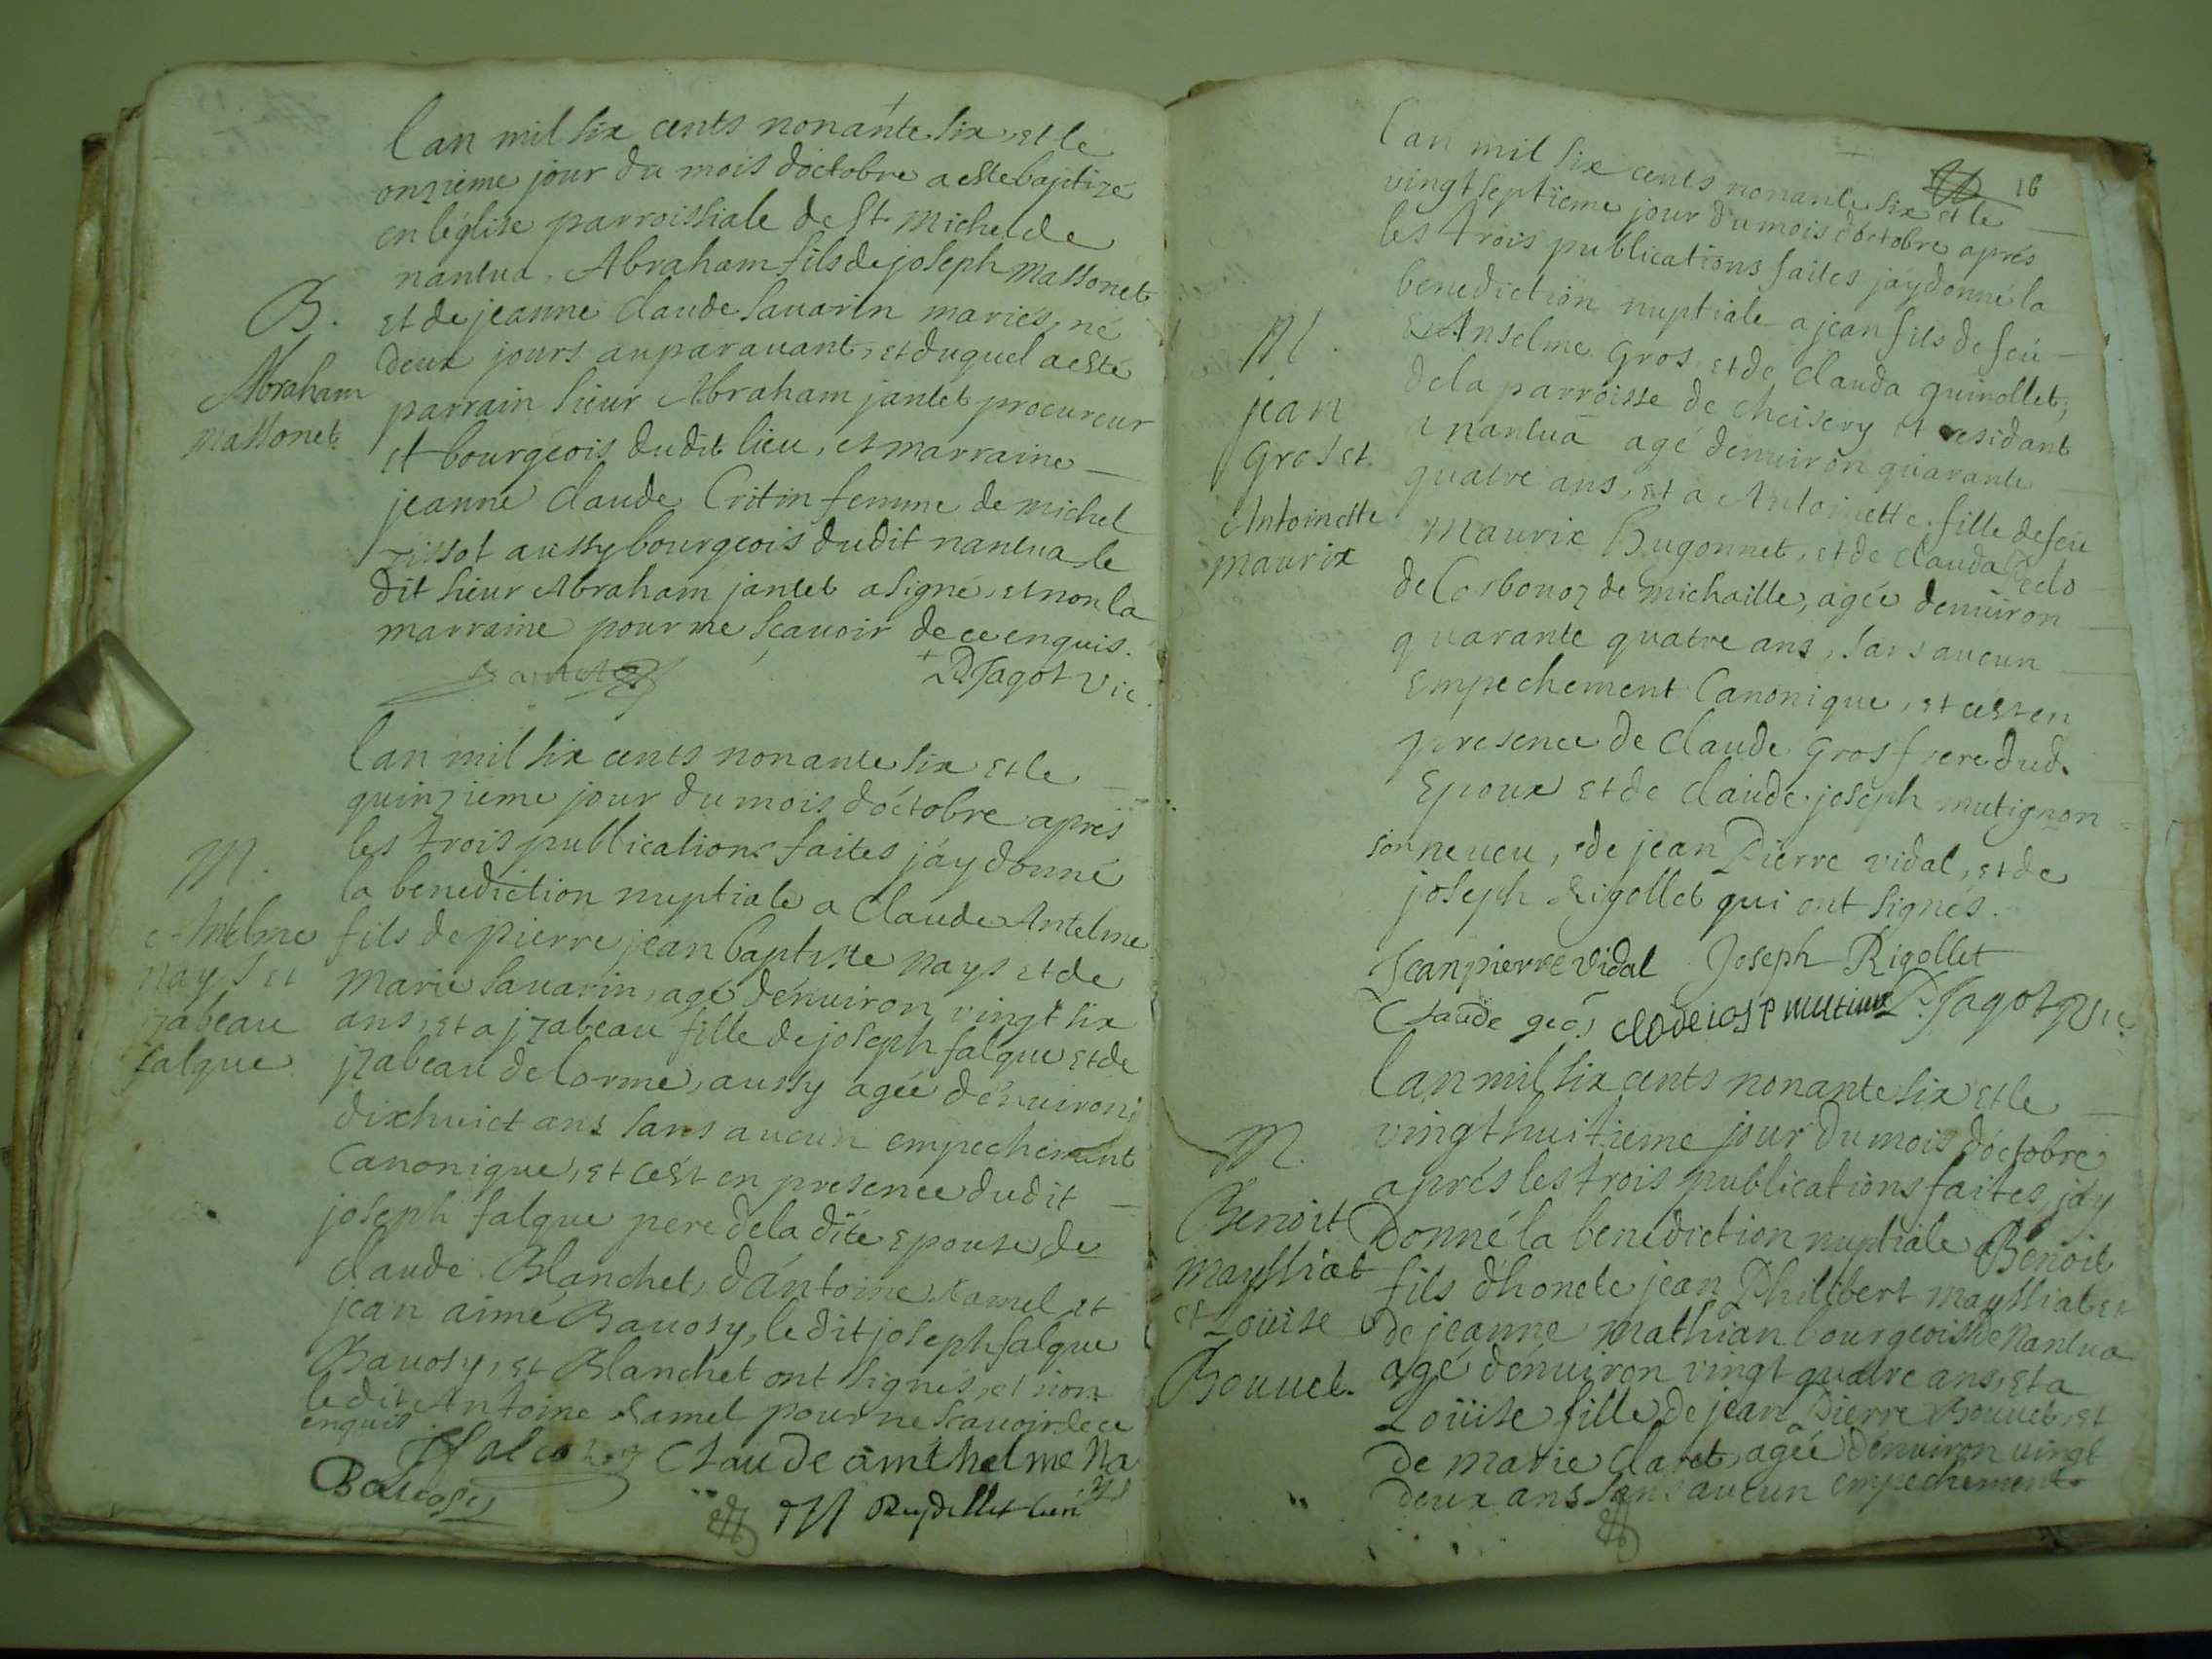 lan mil six cents nonante six, et le
onzieme jour du mois doctobre a esté baptizé
en leglise parroissiale de St Michel de
nantua, Abraham fils de joseph massonet
et de jeanne claude savarin mariés, né
deux jours auparavant, et duquel a esté
parrain sieur Abraham jantet procureur
et bourgeois dudit lieu, et marraine
jeanne claude Critin femme de michel
tissot aussy bourgeois dudit nantua, le
dit sieur Abraham jantet a signé, et non la
marraine pour ne scavoir de ce enquis.
Jantet
P Jagot vic.
B.
Abraham
massonet
lan mil six cents nonante six et le
quinzieme jour du mois doctobre apres
les trois publications faites jáy donné
la benediction nuptiale a Claude Antelme
fils de pierre jean baptiste nays et de
marie savarin, agé denuiron vingt six
ans, et a jzabeau fille de joseph falque et de
jzabeau delorme, aussy agée denuiron
dixhuict ans sans aucun empechement
Canonique, et cést en presence dudit
joseph falque pere dela dite epouse, de
claude Blanchet, dántoine Ramel et
jean aimé Bauosy, le dit joseph falque
Bauosy, et Blanchet ont signés, et non
le dit Antoine Ramel pour ne scauoir de ce
enquis
Claude amthelme Na
ys
Bauosy
M.
Antelme
nays et
jzabeau
falque
16
lan mil six cents nonante six et le
vingt septieme jour du mois doctobre aprés
les trois publications faites jay donné la
benediction nuptiale a jean fils de feu
Anselme Gros, et de clauda guinollet,
dela parroisse de cheisery et residant
a nantua agé denuiron quarante
quatre ans, et a Antoinette fille de feu
Maurix Hugonnet, et de clauda
de Corbonoz de michaille, agée denuiron
quarante quatre ans, sans aucun
Empechement Canonique, et cést en
presence de claude gros frere dud.
Epoux et de claude joseph mutignon
son neueu, de jean Pierre vidal, et de
joseph Rigollet qui ont signés.
Jean pierre vidal Joseph Rigollet
Claude gros P. Jagot Vic.
M.
jean
Gros et
Antoinette
maurix
lan mil six cents nonante six et le
vingt huitieme jour du mois doctobre
aprés les trois publications faites, jáy
Donné la benediction nuptiale a Benoit
fils dhonete jean Philibert mayssiat et
de jeanne mathian bourgeois de Nantua
agé dénuiron vingt quatre ans, et a
Loüise fille de jean Pierre Bouuet, et
de marie claret, agée dénuiron vingt
deux ans sans aucun empechement
M.
Benoit
mayssiat
et Louise
Bouuet.